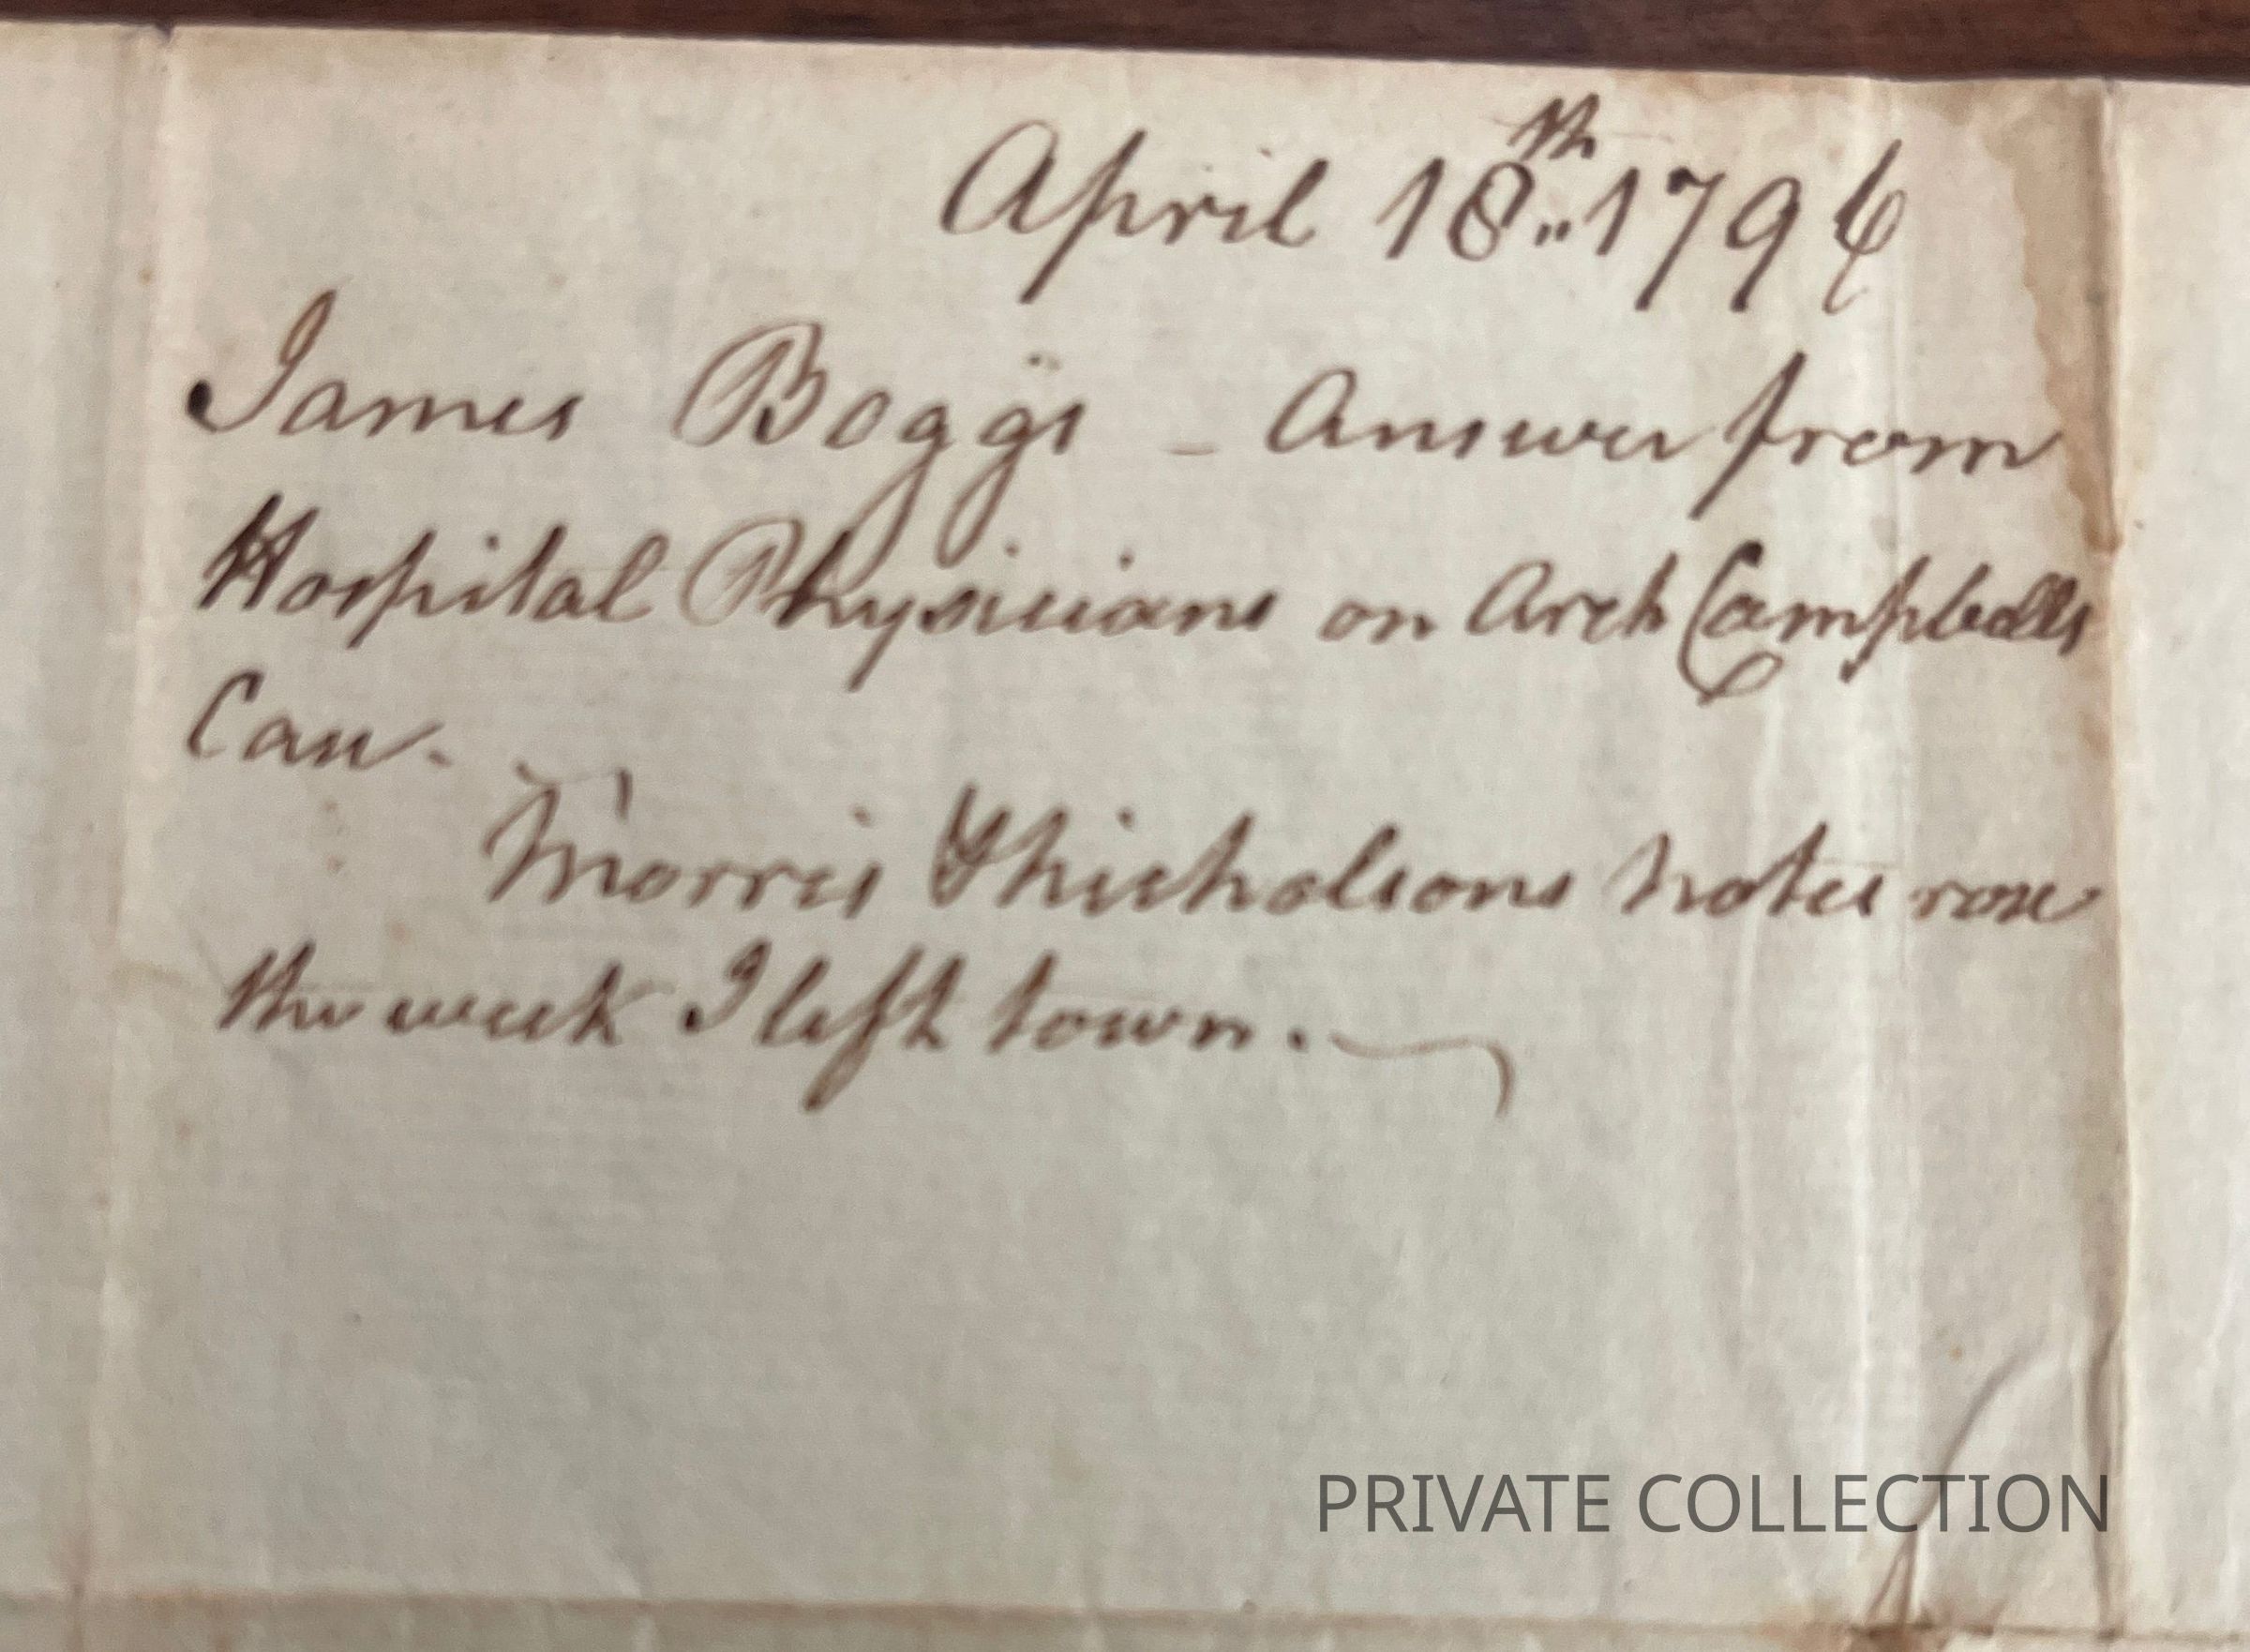 April 18th 1796
James Boggs – Answer from
Hospital Physicians on Arch Campbells
Case.
Morris & Nicholsons Notes rose
the week I left town.
PRIVATE COLLECTION